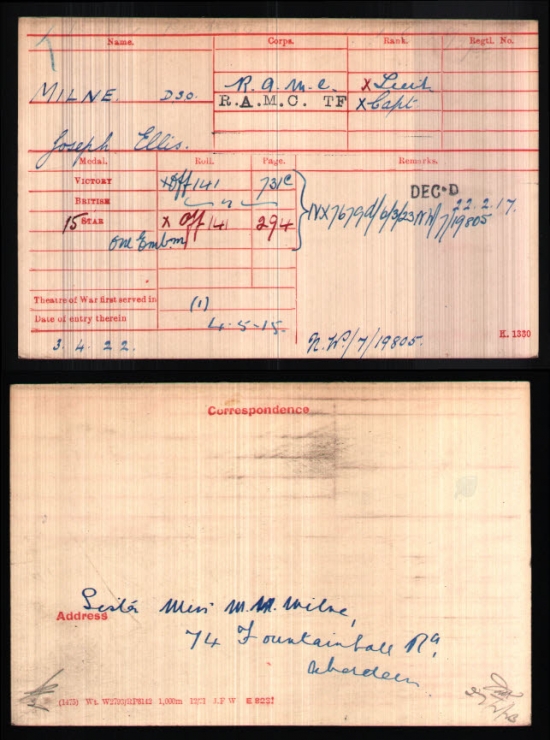 Name. Corps. Rank. Regtl. No.
MILNE. DSO. R.A.M.C. X Lieut
R.A.M.C. TF X Capt
Joseph Ellis.
Medal. Roll. Page. Remarks.
VICTORY X Off 141 731C DEC·D
BRITISH — " — 22.2.17.
15 STAR X Off 141 294 NW/7/19805
one Embm
Theatre of War first served in (1)
Date of entry therein 4-5-15. K. 1330
3. 4. 22. N.W./7/19805.
Correspondence
Sister Miss M. M. Milne,
Address
74 Fountainhall Rd,
Aberdeen.
1,000m J.F W